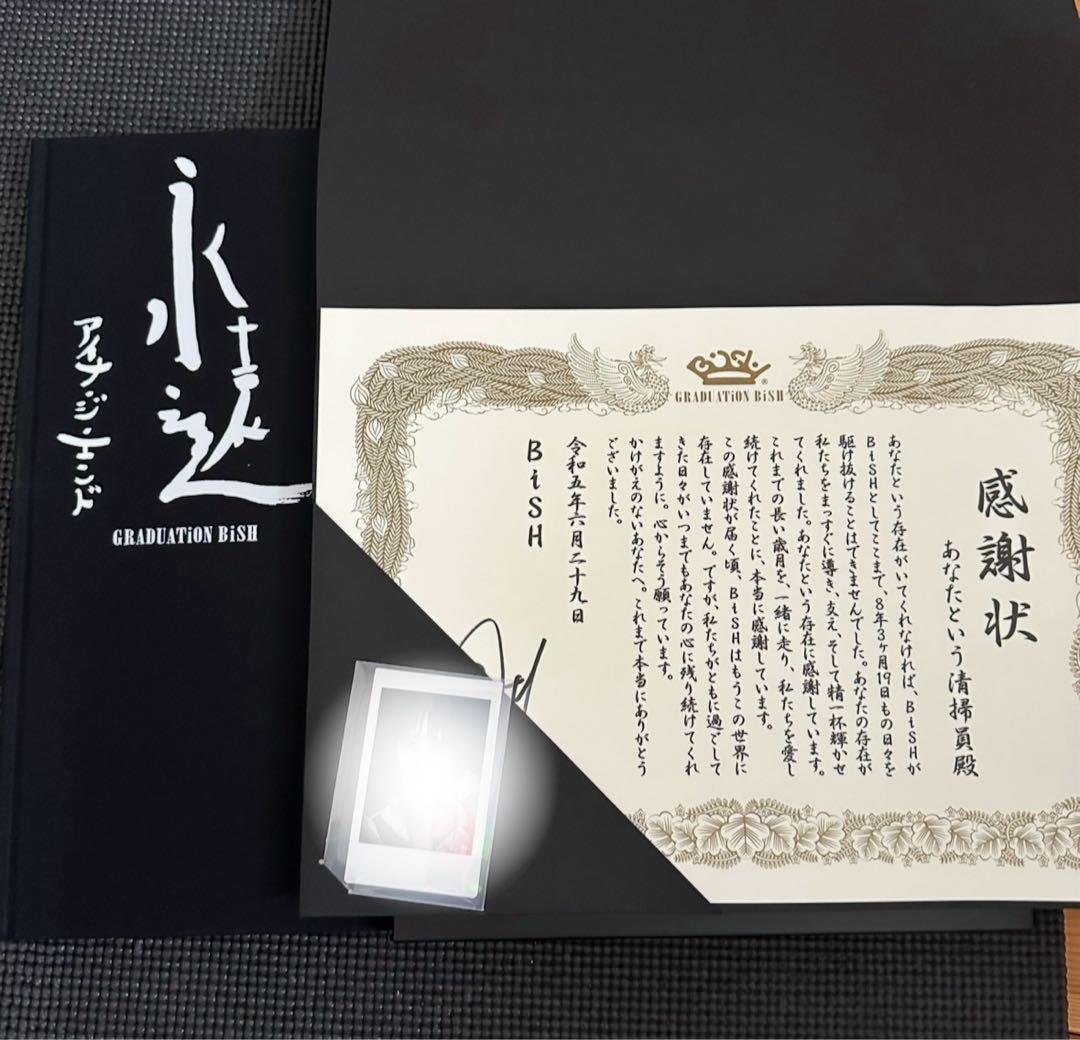 永遠
アイナ・ジ・エンド
GRADUATiON BiSH
BiSH
GRADUATiON BiSH
感謝状
あなたという清掃員殿
あなたという存在がいてくれなければ、BiSHが
BiSHとしてここまで、8年3ヶ月19日もの日々を
駆け抜けることはできませんでした。あなたの存在が
私たちをまっすぐに導き、支え、そして精一杯輝かせ
てくれました。あなたという存在に感謝しています。
これまでの長い歳月を、一緒に走り、私たちを愛し
続けてくれたことに、本当に感謝しています。
この感謝状が届く頃、BiSHはもうこの世界に
存在していません。ですが、私たちがともに過ごして
きた日々がいつまでもあなたの心に残り続けてくれ
ますように。心からそう願っています。
かけがえのないあなたへ。これまで本当にありがとう
ございました。
令和五年六月二十九日
BiSH